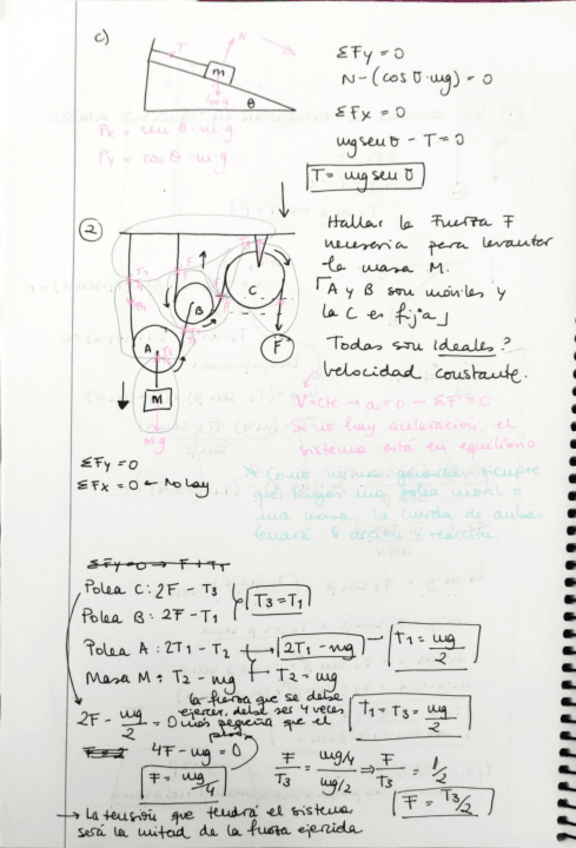 c)
T
N
m
m·g
θ
Px = sen θ · m·g
Py = cos θ · m·g
ΣFy = 0
N - (cos θ · mg) = 0
ΣFx = 0
mg sen θ - T = 0
T = mg sen θ
②
A
B
C
F
M
M·g
Hallar la Fuerza F
necesaria para levantar
la masa M.
⌈A y B son móviles y
la C es fija⌋
Todas son ideales?
Velocidad constante.
V=cte → a=0 → ΣF=0
Si no hay aceleración, el
sistema está en equilibrio.
* Como norma general, siempre
que tengas una polea móvil o
una masa, la cuerda de ambas
tendrá acción y reacción.
ΣFy = 0
ΣFx = 0 ← No hay
ΣFy=0 → F+T
Polea C: 2F - T3
T3 = T1
Polea B: 2F - T1
Polea A: 2T1 - T2 → 2T1 - mg
T1 = mg/2
Masa M: T2 - mg
T2 = mg
la fuerza que se debe
ejercer, debe ser 4 veces
más pequeña que el
2F - mg/2 = 0
T1 = T3 = mg/2
F=2
4F - mg = 0
F = mg/4
F/T3 = mg/4 / mg/2 ⇒ F/T3 = 1/2
F = T3/2
→ La tensión que tendrá el sistema
será la mitad de la fuerza ejercida